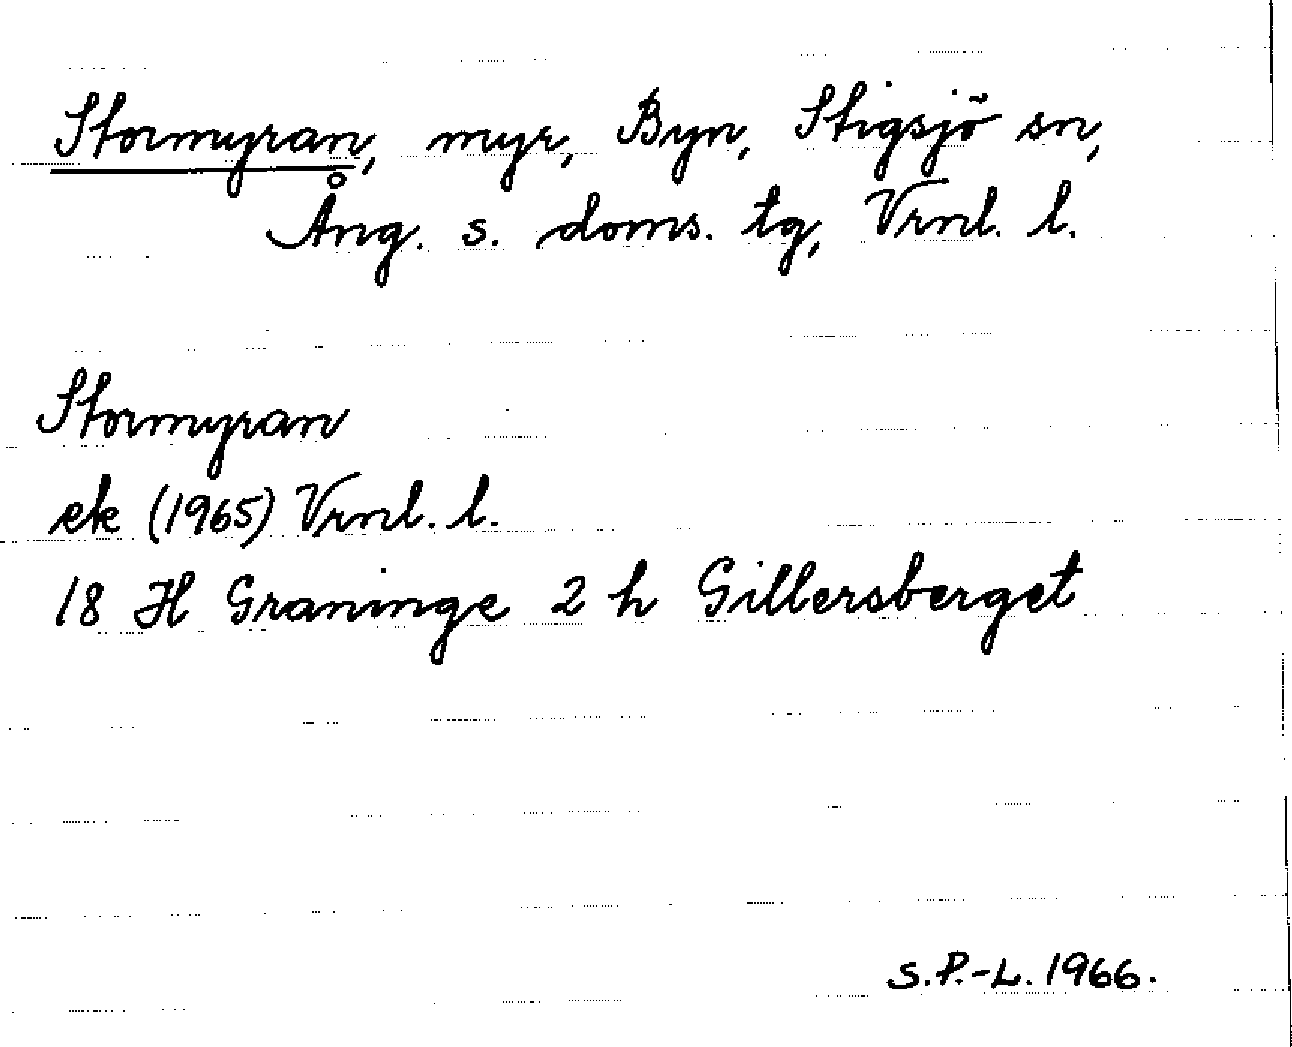 Stormyran, myr, Byn, Stigsjö sn,
Ång. s. doms. tg, Vrnl. l.
Stormyran
ek (1965) Vrnl. l.
18 H Graninge 2 h Gillersberget
S.P.-L. 1966.